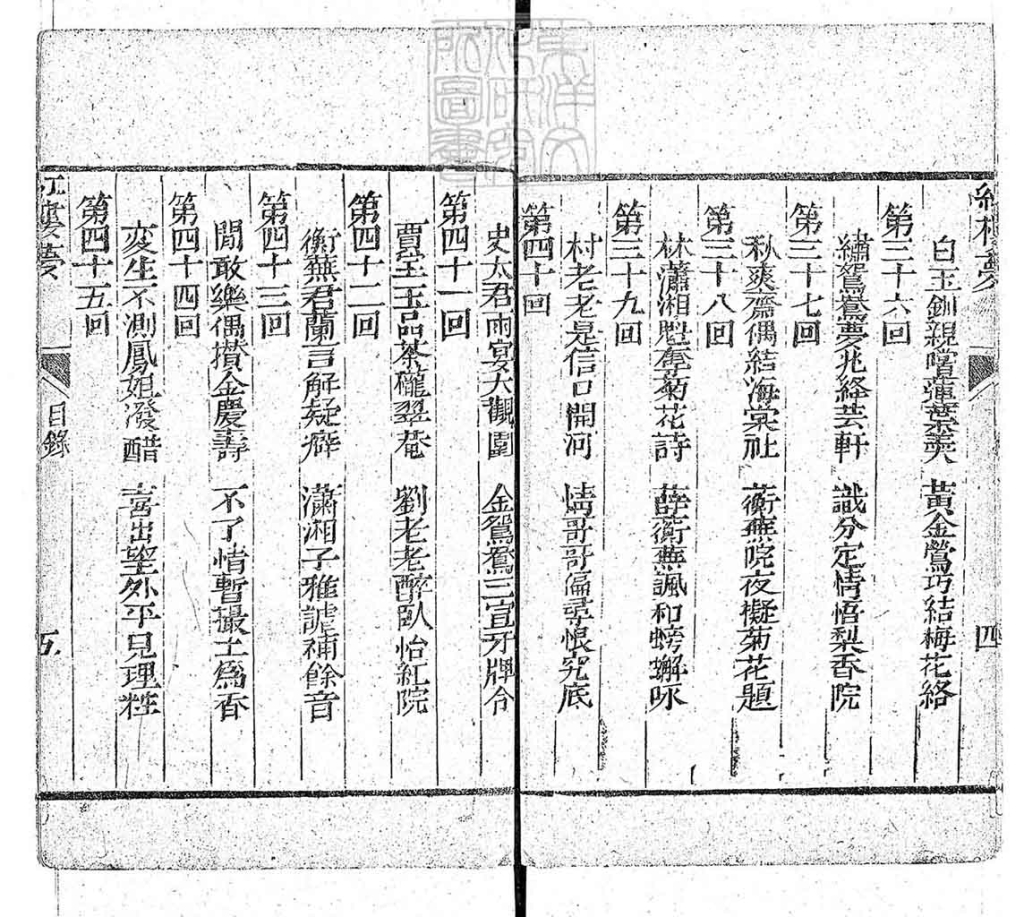 紅樓夢
四
白玉釧親嚐蓮葉羮 黃金鶯巧結梅花絡
第三十六回
繡鴛鴦夢兆絳芸軒 識分定情悟梨香院
第三十七回
秋爽齋偶結海棠社 蘅蕪院夜擬菊花題
第三十八回
林瀟湘魁奪菊花詩 薛蘅蕪諷和螃蠏咏
第三十九回
村老老是信口開河 情哥哥偏尋恨究底
第四十回
史太君兩宴大觀園 金鴛鴦三宣牙牌令
第四十一回
賈寶玉品茶櫳翠菴 劉老老醉臥怡紅院
第四十二回
蘅蕪君蘭言解疑癖 瀟湘子雅謔補餘音
第四十三回
閒取樂偶攢金慶壽 不了情暫撮土爲香
第四十四回
変生不測鳳姐潑醋 喜出望外平兒理粧
第四十五回
紅樓夢
目錄
五
東洋文化研究所圖書